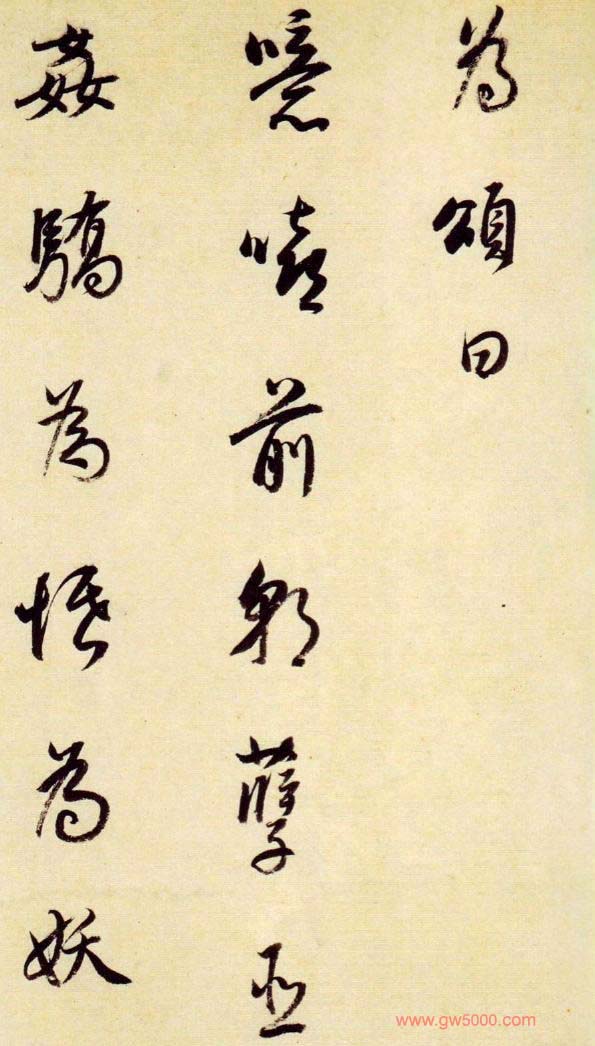 為頌曰
噫嘻前朝孽臣
姦驕為惛為妖
www.gw5000.com